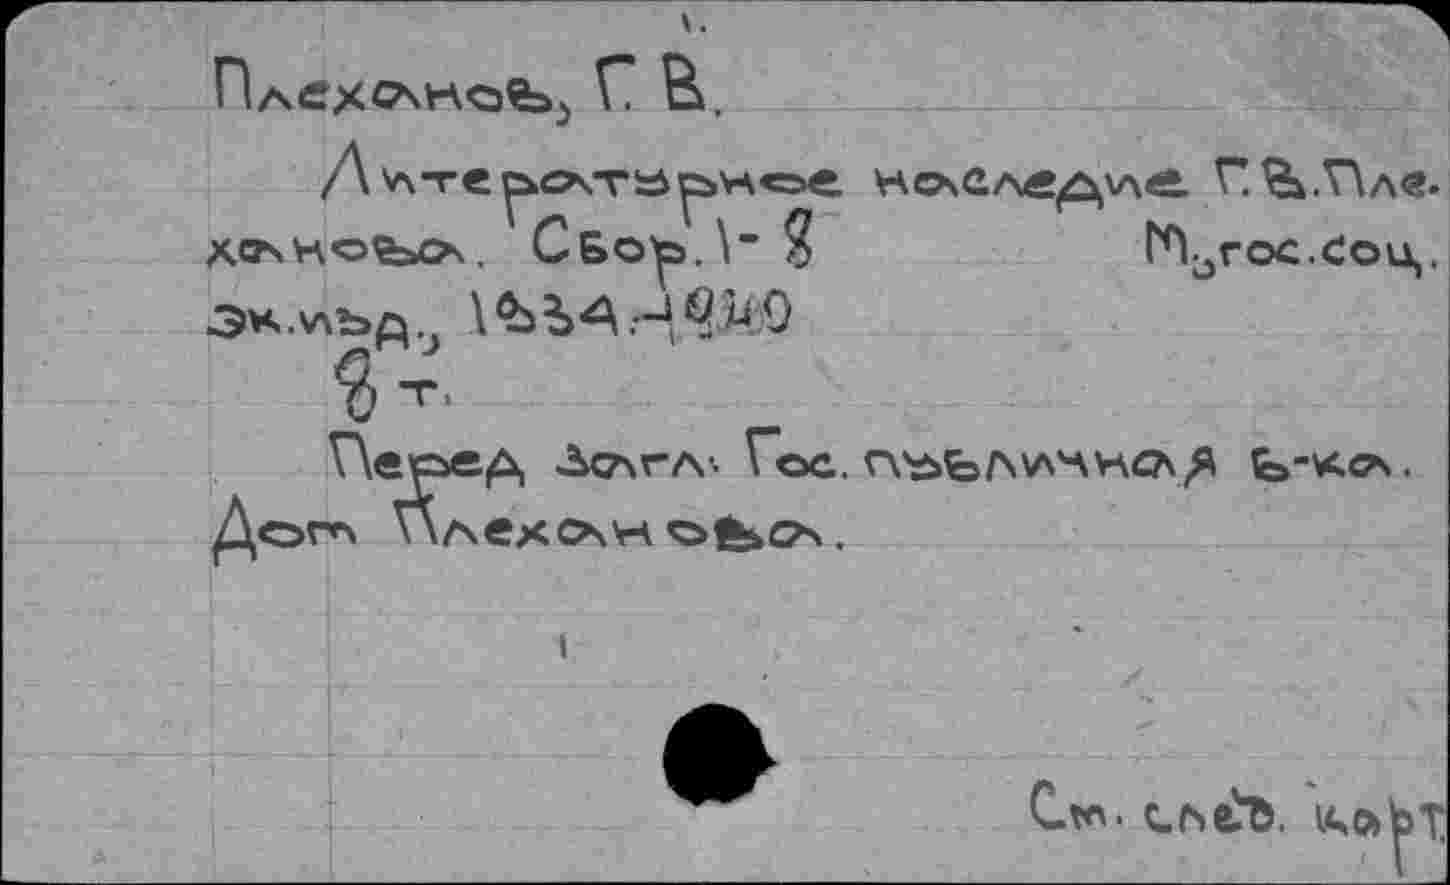 Плеханов, Г. В.
Литературное наследие Г.В.Пле-
ханова. Сбор. 1- 8 М., гос.соц.
эк.изд., 1934-4940
8 т.
Перед загл: Гос. публичная б-ка.
Дом Плеханова.
См. след. карт